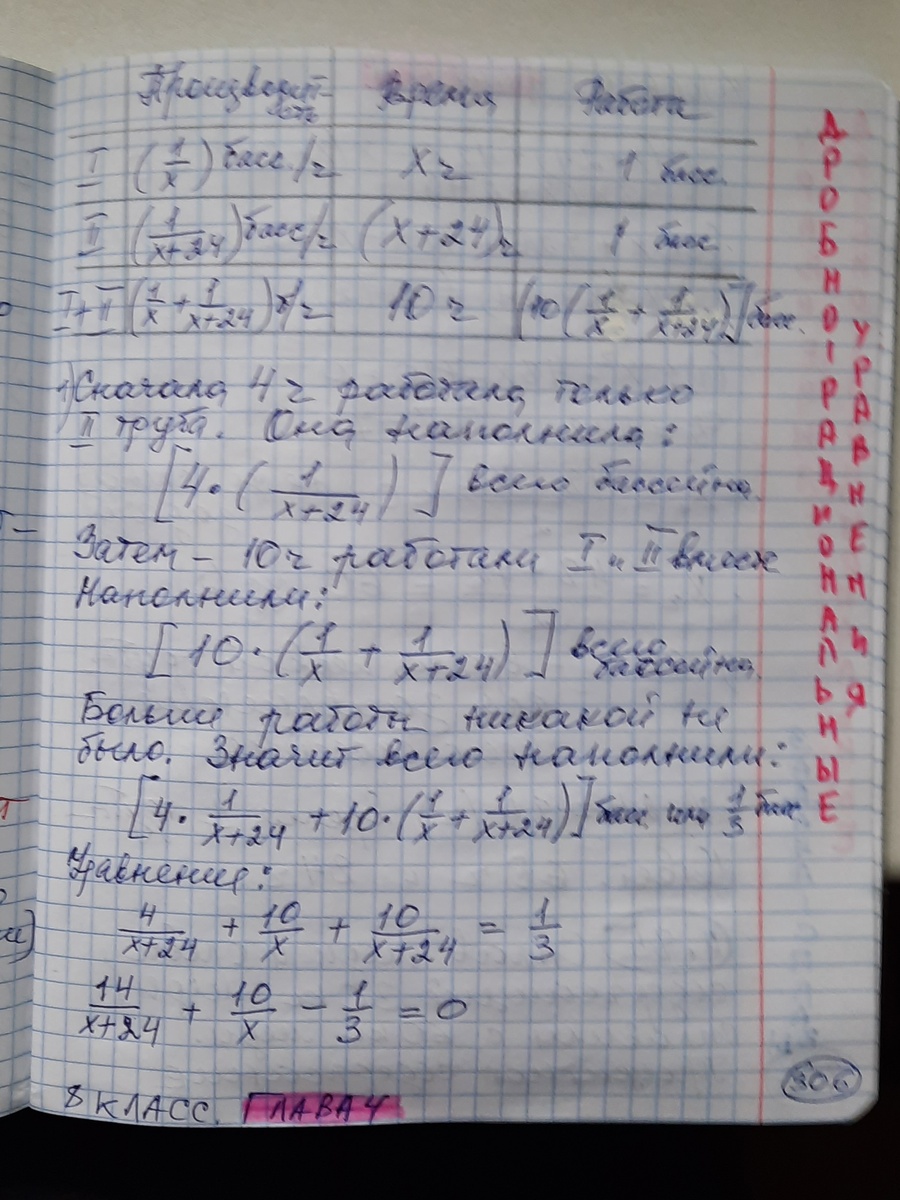 Производит- Время Работа
ность
I (1/x) басс./ч x ч 1 басс.
II (1/(x+24)) басс/ч (x+24)ч 1 басс
I+II (1/x + 1/(x+24)) б/ч 10 ч [10(1/x + 1/(x+24))] басс.
1) Сначала 4 ч работала только
II труба. Она наполнила:
[4·(1/(x+24))] всего бассейна.
Затем – 10ч работали I и II вместе
Наполнили:
[10·(1/x + 1/(x+24))] всего
бассейна.
Больше работы никакой не
было. Значит всего наполнили:
[4·1/(x+24) + 10·(1/x + 1/(x+24))] басс или 1/3 басс
Уравнение:
4/(x+24) + 10/x + 10/(x+24) = 1/3
14/(x+24) + 10/x − 1/3 = 0
8 КЛАСС. ГЛАВА 4
306
ДРОБНО РАЦИОНАЛЬНЫЕ
УРАВНЕНИЯ